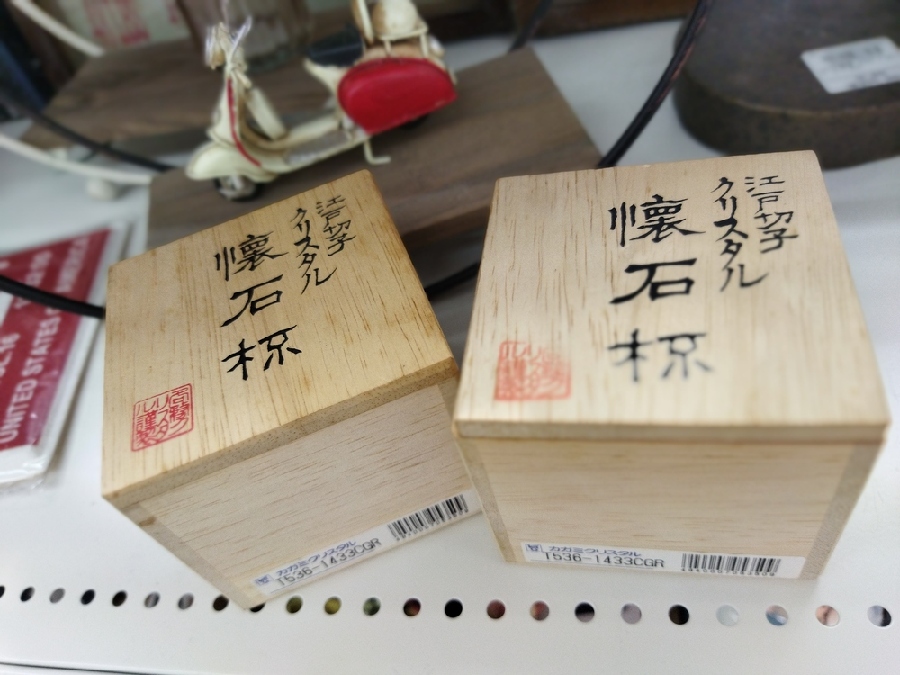 江戸切子
クリスタル
懐石杯
カガミクリスタル
T536-1433CGR
江戸切子
クリスタル
懐石杯
カガミクリスタル
T536-1433CGR
UNITED STATES